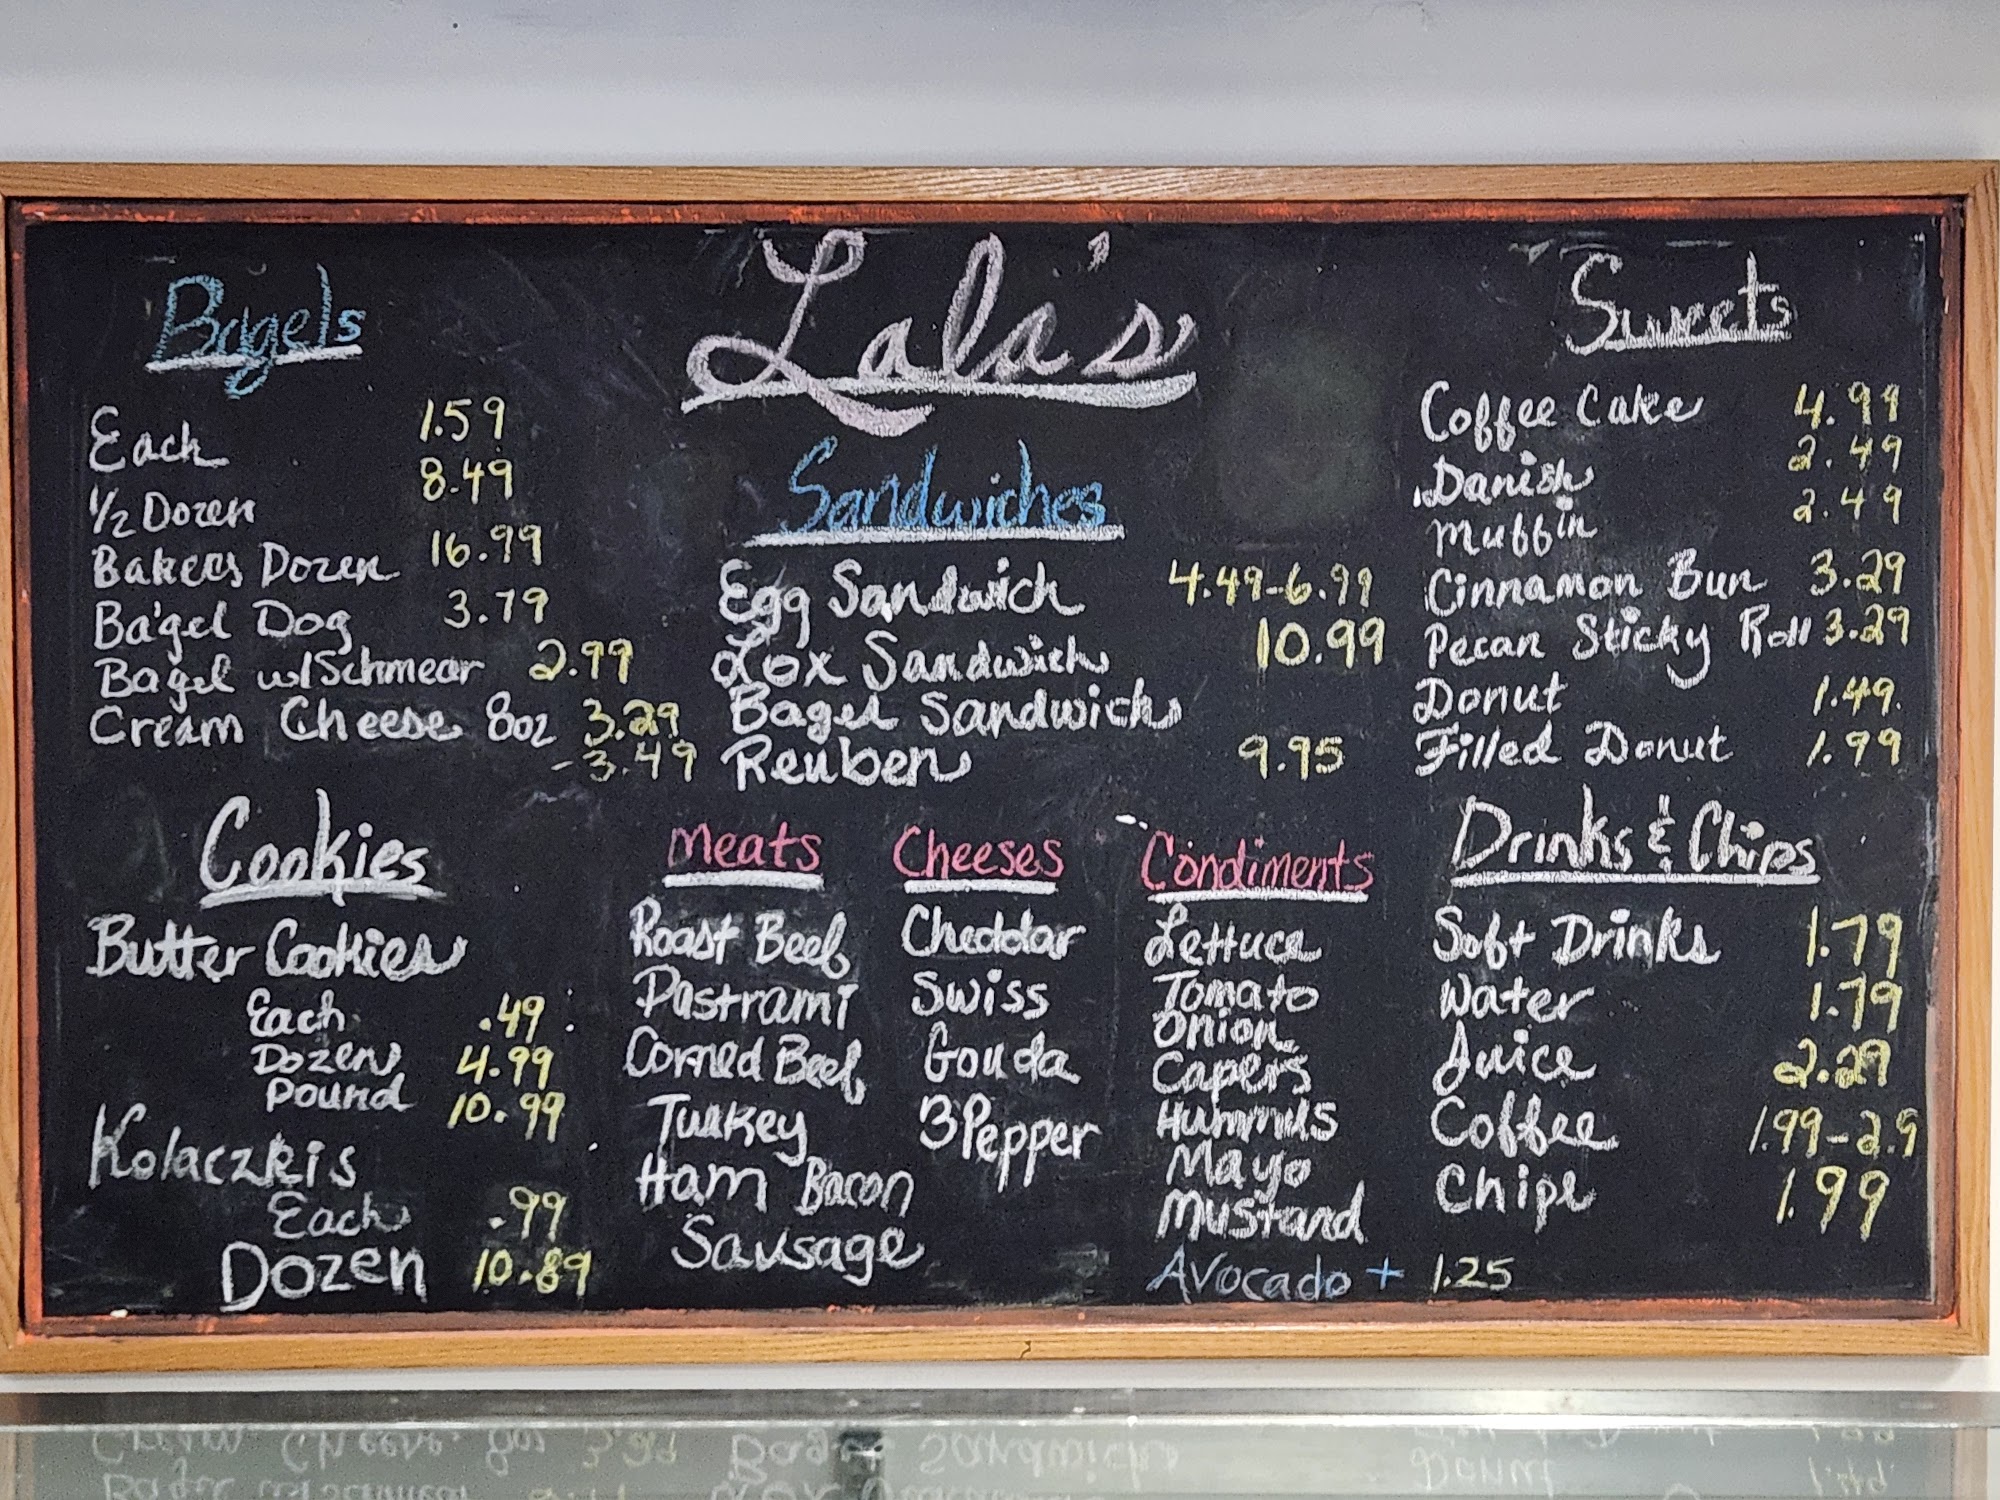 Lala's
Bagels
Each 1.59
1/2 Dozen 8.49
Bakers Dozen 16.99
Bagel Dog 3.79
Bagel w/Schmear 2.99
Cream Cheese 8oz 3.29
-3.49
Cookies
Butter Cookies
Each .49
Dozen 4.99
Pound 10.99
Kolaczkis
Each .99
Dozen 10.89
Sandwiches
Egg Sandwich 4.49-6.99
Lox Sandwich 10.99
Bagel Sandwich
Reuben 9.95
Meats
Roast Beef
Pastrami
Corned Beef
Turkey
Ham Bacon
Sausage
Cheeses
Cheddar
Swiss
Gouda
3Pepper
Condiments
Lettuce
Tomato
Onion
Capers
Hummus
Mayo
Mustard
Avocado + 1.25
Sweets
Coffee Cake 4.99
Danish 2.49
Muffin 2.49
Cinnamon Bun 3.29
Pecan Sticky Roll 3.29
Donut 1.49
Filled Donut 1.99
Drinks & Chips
Soft Drinks 1.79
Water 1.79
Juice 2.29
Coffee 1.99-2.9
Chips 1.99